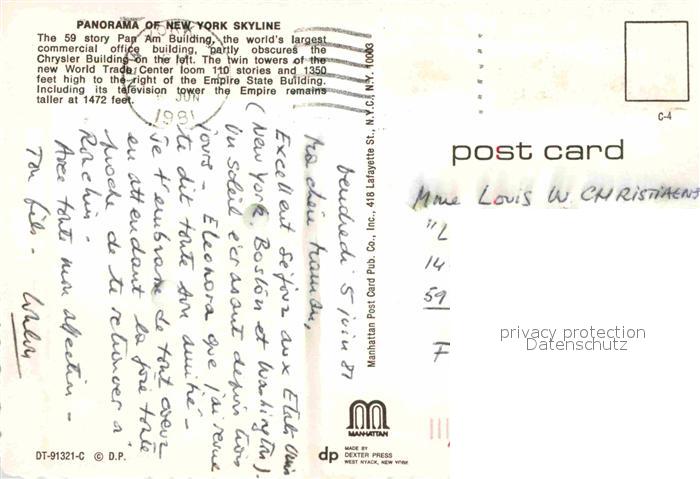 PANORAMA OF NEW YORK SKYLINE
The 59 story Pan Am Building, the world's largest
commercial office building, partly obscures the
Chrysler Building on the left. The twin towers of the
new World Trade Center loom 110 stories and 1350
feet high to the right of the Empire State Building.
Including its television tower the Empire remains
taller at 1472 feet.
JUN
1981
Vendredi 5 juin 81
Ma chère maman,
Excellent séjour aux Etats Unis
(New York, Boston et Washington).
Un soleil écrasant depuis trois
jours - Eleonora que j'ai revue
te dit toute son amitié -
Je t'embrasse de tout coeur
en attendant la joie toute
proche de te retrouver à
Ronchin -
Avec toute mon affection -
Ton fils -
DT-91321-C © D.P.
Manhattan Post Card Pub. Co., Inc., 418 Lafayette St., N.Y.C., N.Y. 10003
MANHATTAN
dp MADE BY
DEXTER PRESS
WEST NYACK, NEW YORK
C-4
post card
Mme Louis W. CHRISTIAENS
"L
14
59
F
privacy protection
Datenschutz